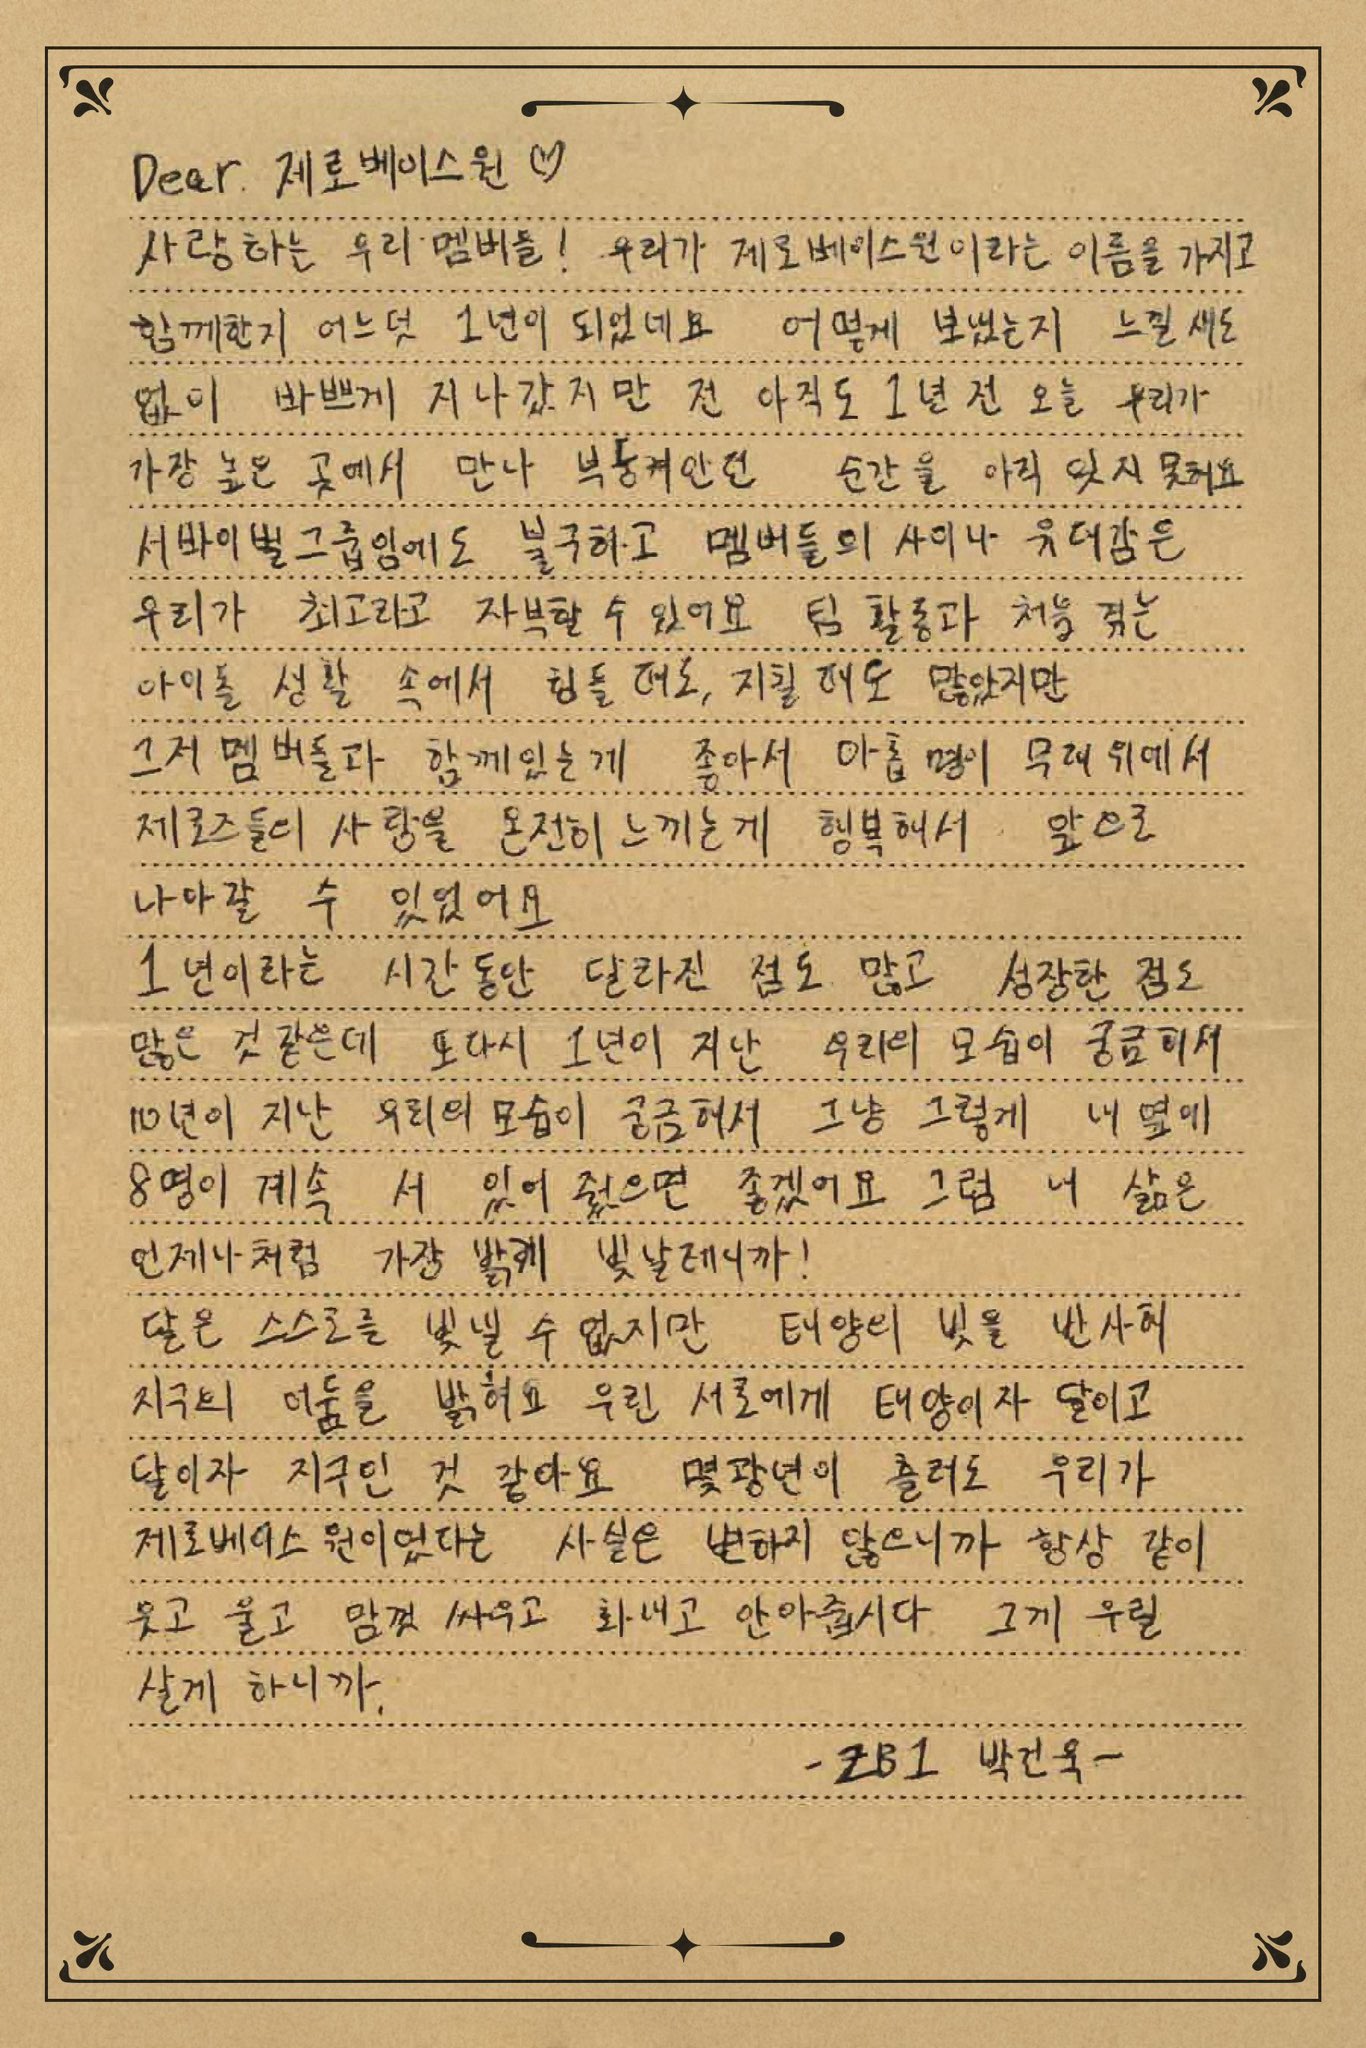 Dear. 제로베이스원 ♡
사랑하는 우리 멤버들! 우리가 제로베이스원이라는 이름을 가지고
함께한지 어느덧 1년이 되었네요 어떻게 보냈는지 느낄새도
없이 바쁘게 지나갔지만 전 아직도 1년 전 오늘 우리가
가장 높은 곳에서 만나 부둥켜안던 순간을 아직 잊지 못해요
서바이벌그룹임에도 불구하고 멤버들의 사이나 유대감은
우리가 최고라고 자부할 수 있어요 팀 활동과 처음 겪는
아이돌 생활 속에서 힘들 때도, 지칠 때도 많았지만
그저 멤버들과 함께있는게 좋아서 아홉 명이 무대 위에서
제로즈들의 사랑을 온전히 느끼는게 행복해서 앞으로
나아갈 수 있었어요
1년이라는 시간동안 달라진 점도 많고 성장한 점도
많은 것 같은데 또다시 1년이 지난 우리의 모습이 궁금해서
10년이 지난 우리의 모습이 궁금해서 그냥 그렇게 내 옆에
8명이 계속 서 있어 줬으면 좋겠어요 그럼 내 삶은
언제나처럼 가장 밝게 빛날테니까!
달은 스스로를 빛낼 수 없지만 태양의 빛을 반사해
지구의 어둠을 밝혀요 우린 서로에게 태양이자 달이고
달이자 지구인 것 같아요 몇광년이 흘러도 우리가
제로베이스원이었다는 사실은 변하지 않으니까 항상 같이
웃고 울고 맘껏 싸우고 화내고 안아줍시다 그게 우릴
살게 하니까.
-ZB1 박건욱-